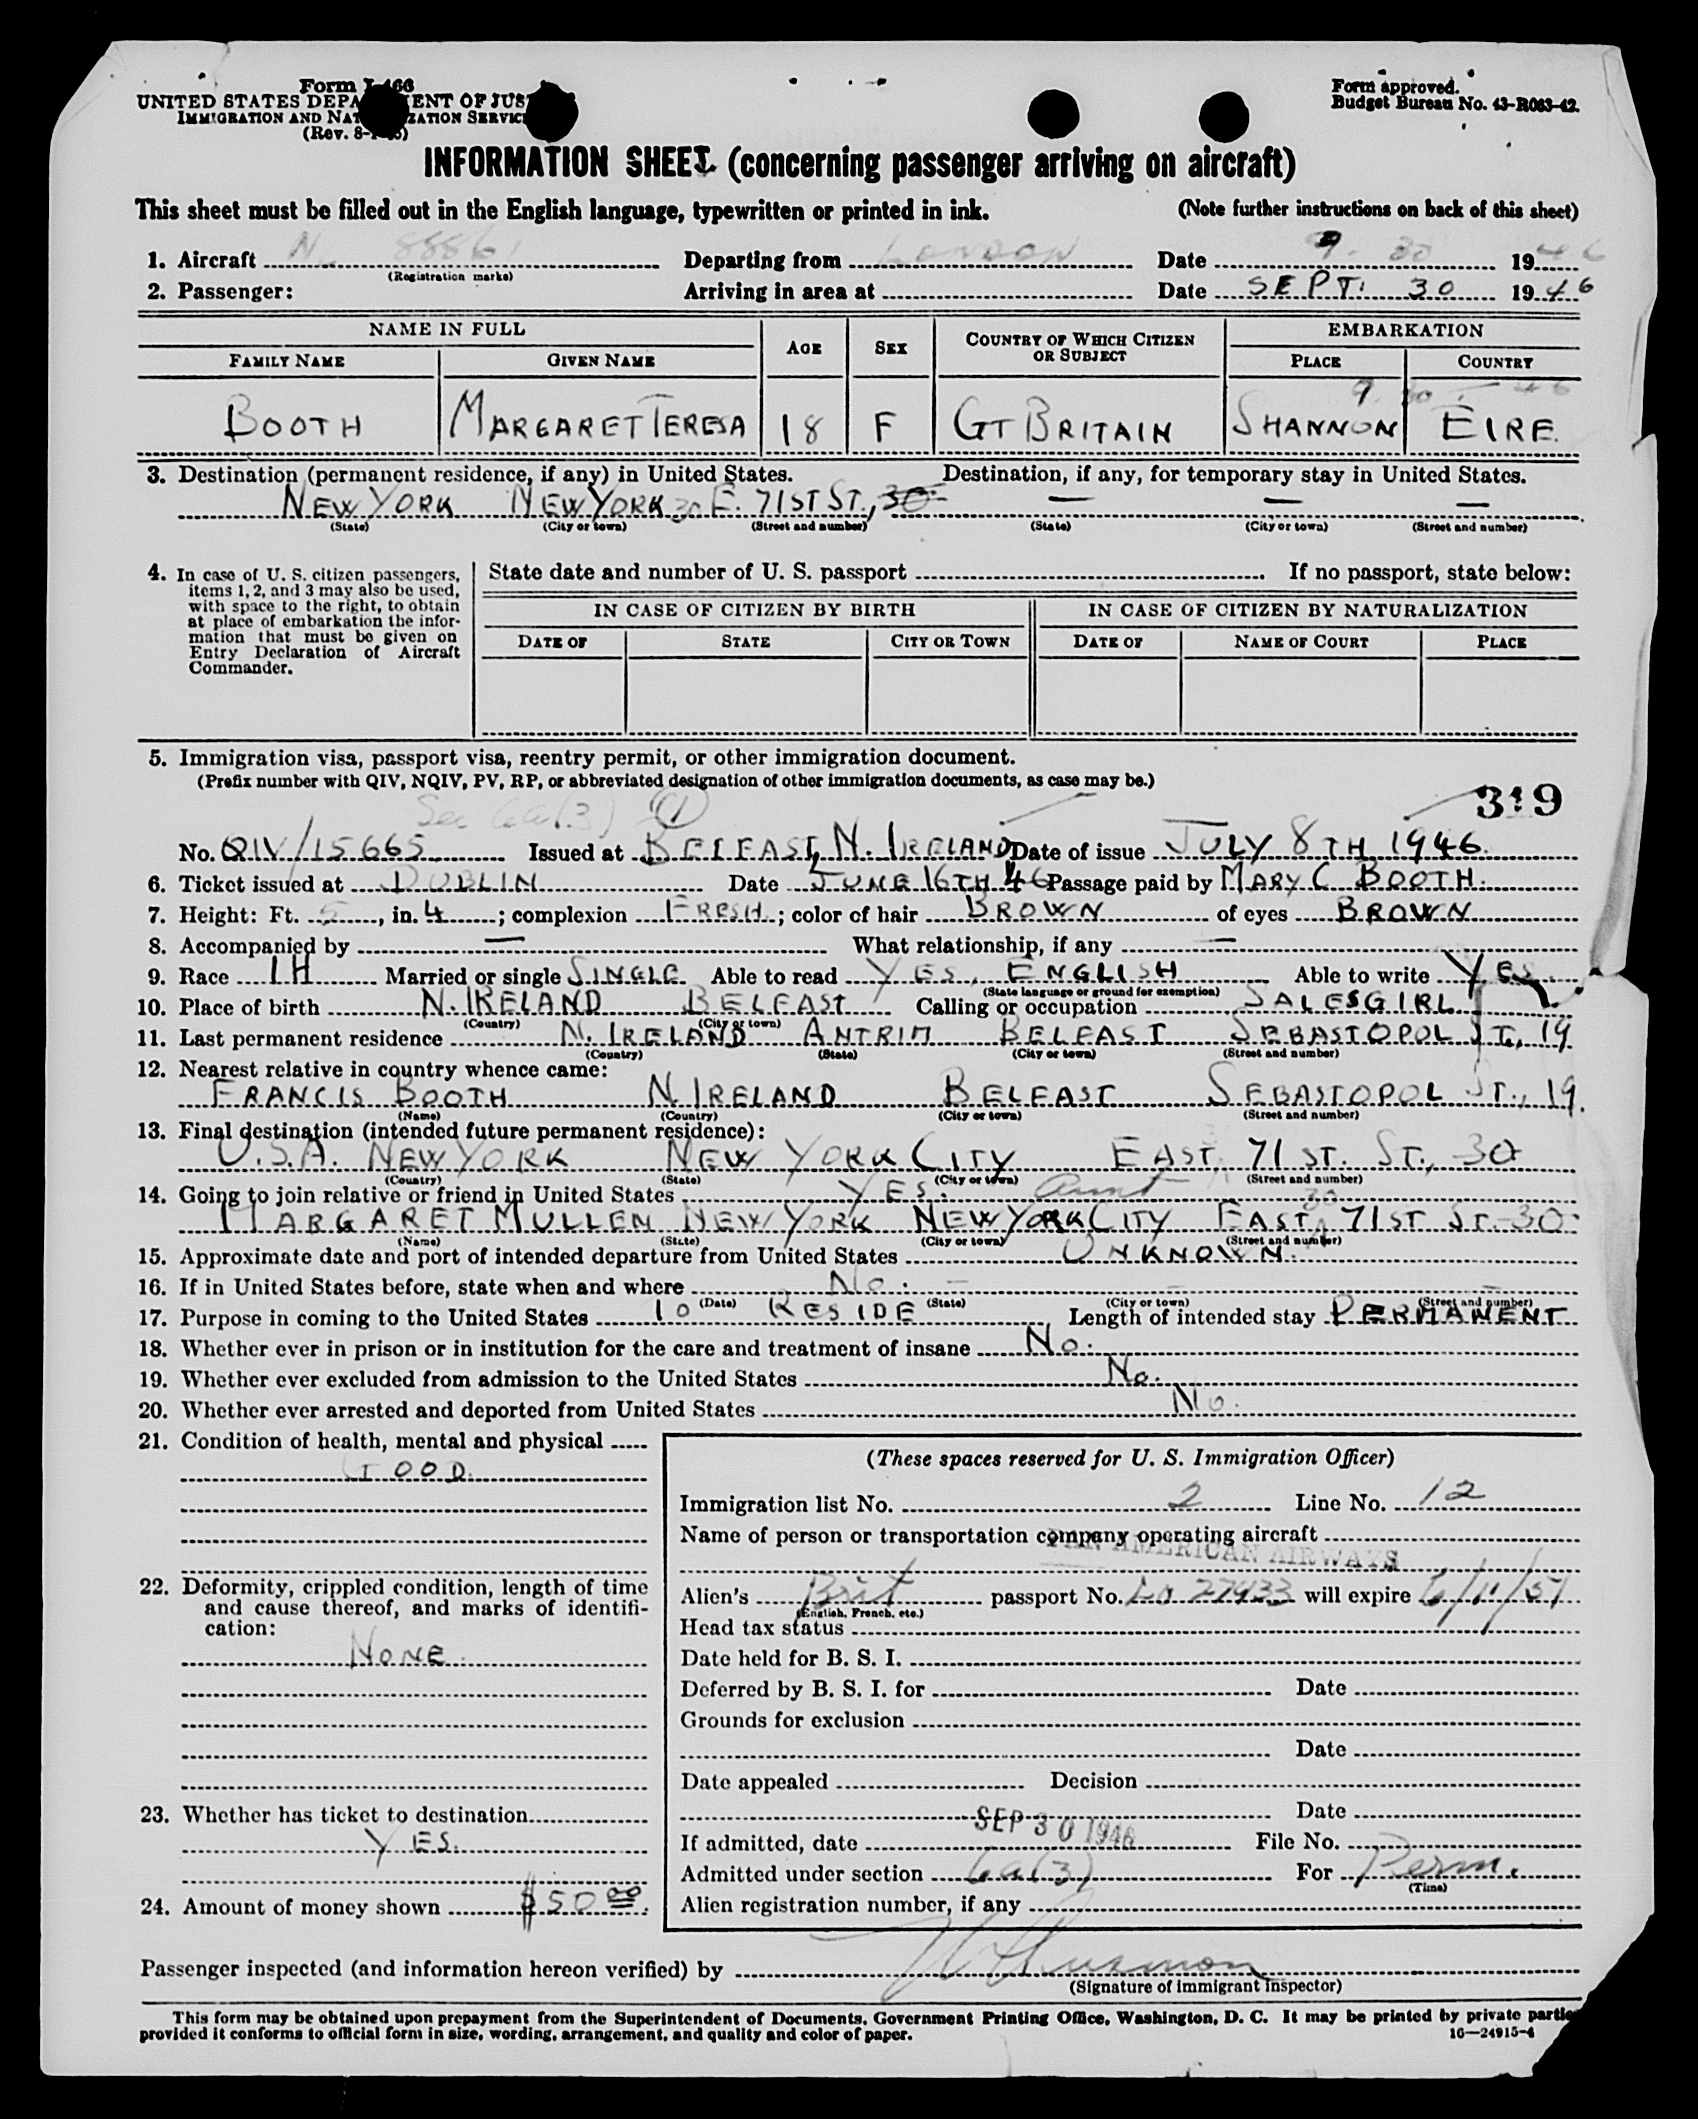 Form I-466
Form approved.
UNITED STATES DEPARTMENT OF JUSTICE
Budget Bureau No. 43-R063-42.
IMMIGRATION AND NATURALIZATION SERVICE
(Rev. 8-1-45)
INFORMATION SHEET (concerning passenger arriving on aircraft)
This sheet must be filled out in the English language, typewritten or printed in ink. (Note further instructions on back of this sheet)
1. Aircraft N 88861 Departing from London Date 9. 30 1946
(Registration marks)
2. Passenger: Arriving in area at Date SEPT. 30 1946
NAME IN FULL AGE SEX COUNTRY OF WHICH CITIZEN OR SUBJECT EMBARKATION
FAMILY NAME GIVEN NAME PLACE COUNTRY
9. 30 - 46
BOOTH MARGARET TERESA 18 F GT BRITAIN SHANNON EIRE.
3. Destination (permanent residence, if any) in United States. Destination, if any, for temporary stay in United States.
NEW YORK NEW YORK 30 E. 71ST ST., 30 — — —
(State) (City or town) (Street and number) (State) (City or town) (Street and number)
4. In case of U. S. citizen passengers, items 1, 2, and 3 may also be used, with space to the right, to obtain at place of embarkation the information that must be given on Entry Declaration of Aircraft Commander.
State date and number of U. S. passport . If no passport, state below:
IN CASE OF CITIZEN BY BIRTH IN CASE OF CITIZEN BY NATURALIZATION
DATE OF STATE CITY OR TOWN DATE OF NAME OF COURT PLACE
5. Immigration visa, passport visa, reentry permit, or other immigration document.
(Prefix number with QIV, NQIV, PV, RP, or abbreviated designation of other immigration documents, as case may be.)
319
Sec 6a(3)
No. QIV/15665 Issued at BELFAST, N. IRELAND Date of issue JULY 8TH 1946.
6. Ticket issued at DUBLIN Date JUNE 16TH 46 Passage paid by MARY C BOOTH.
7. Height: Ft. 5, in. 4; complexion FRESH; color of hair BROWN of eyes BROWN
8. Accompanied by — What relationship, if any —
9. Race IH Married or single SINGLE Able to read YES, ENGLISH Able to write YES.
(State language or ground for exemption)
10. Place of birth N. IRELAND BELFAST Calling or occupation SALESGIRL
(Country) (City or town)
11. Last permanent residence N. IRELAND ANTRIM BELFAST SEBASTOPOL ST., 19
(Country) (State) (City or town) (Street and number)
12. Nearest relative in country whence came:
FRANCIS BOOTH N. IRELAND BELFAST SEBASTOPOL ST., 19.
(Name) (Country) (City or town) (Street and number)
13. Final destination (intended future permanent residence):
U.S.A. NEW YORK NEW YORK CITY EAST, 71 ST. ST., 30
(Country) (State) (City or town) (Street and number)
14. Going to join relative or friend in United States YES. Aunt
30
MARGARET MULLEN NEW YORK NEW YORK CITY EAST 71ST ST. 30
(Name) (State) (City or town) (Street and number)
15. Approximate date and port of intended departure from United States UNKNOWN.
16. If in United States before, state when and where No. — — —
(Date) (State) (City or town) (Street and number)
17. Purpose in coming to the United States TO RESIDE Length of intended stay PERMANENT
18. Whether ever in prison or in institution for the care and treatment of insane No.
19. Whether ever excluded from admission to the United States No.
20. Whether ever arrested and deported from United States No.
21. Condition of health, mental and physical
GOOD.
22. Deformity, crippled condition, length of time and cause thereof, and marks of identification:
NONE.
23. Whether has ticket to destination
YES.
24. Amount of money shown $50 00.
(These spaces reserved for U. S. Immigration Officer)
Immigration list No. 2 Line No. 12
Name of person or transportation company operating aircraft
PAN AMERICAN AIRWAYS
Alien's Brit passport No. LO 27933 will expire 6/10/51
(English, French, etc.)
Head tax status
Date held for B. S. I.
Deferred by B. S. I. for Date
Grounds for exclusion
Date
Date appealed Decision
Date
If admitted, date SEP 30 1946 File No.
Admitted under section 6a(3) For Perm.
(Time)
Alien registration number, if any
Passenger inspected (and information hereon verified) by
(Signature of immigrant inspector)
This form may be obtained upon prepayment from the Superintendent of Documents, Government Printing Office, Washington, D. C. It may be printed by private parties
provided it conforms to official form in size, wording, arrangement, and quality and color of paper. 16—24915-4